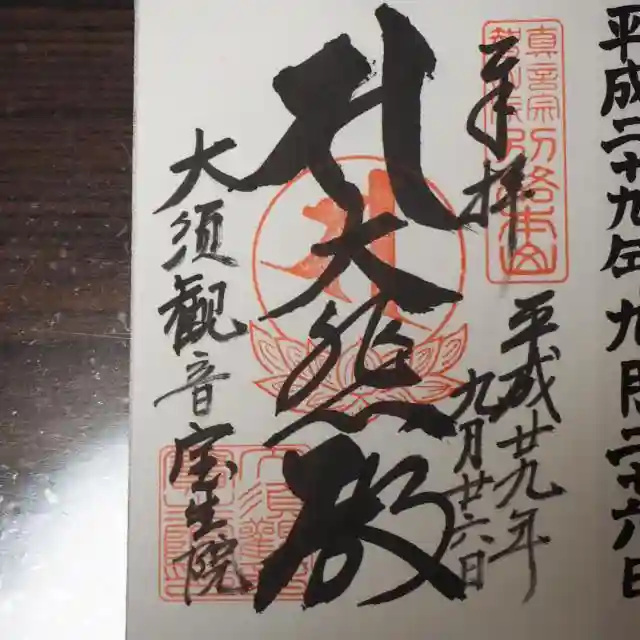 平成二十九年九月二十六日
奉拝
真言宗
別格本山
平成廿九年
九月廿六日
大悲殿
大須観音
宝生院